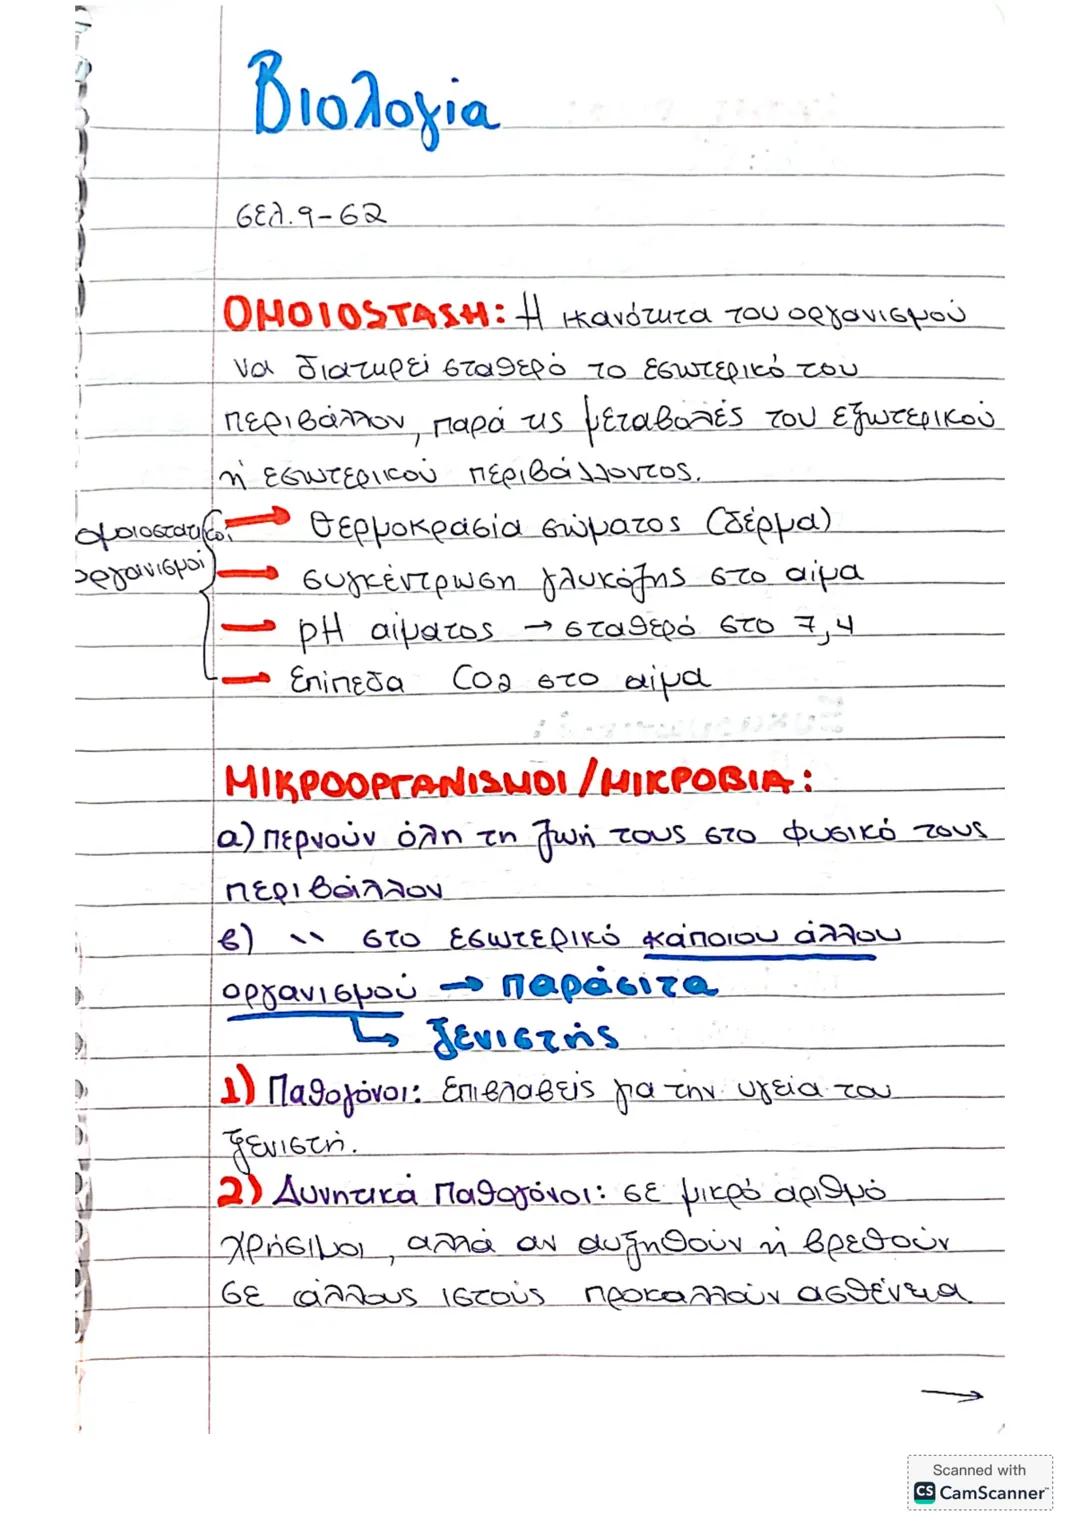 Βιολογία
σελ. 9-62
ΟΜΟΙΟSΤΑSΗ: Η ικανότητα του οργανισμού
να διατηρεί σταθερό το εσωτερικό του
περιβάλλον, παρά τις μεταβολές του εξωτερικού
ή εσωτερικού περιβάλλοντος.
ομοιοστατικοί
οργανισμοί
→ θερμοκρασία σώματος (δέρμα)
— συγκέντρωση γλυκόζης στο αίμα
— pH αίματος → σταθερό στο 7,4
— Επίπεδα CO2 στο αίμα
ΜΙΚΡΟΟΡΓΑΝΙSΜΟΙ/ΜΙΚΡΟΒΙΑ:
α) περνούν όλη τη ζωή τους στο φυσικό τους
περιβάλλον
β) \\ στο εσωτερικό κάποιου άλλου
οργανισμού → παράσιτα
↳ ξενιστής
1) Παθογόνοι: Επιβλαβείς για την υγεία του
ξενιστή.
2) Δυνητικά Παθογόνοι: σε μικρό αριθμό
χρήσιμοι, αλλά αν αυξηθούν ή βρεθούν
σε άλλους ιστούς προκαλλούν ασθένεια
→
Scanned with
CS CamScanner